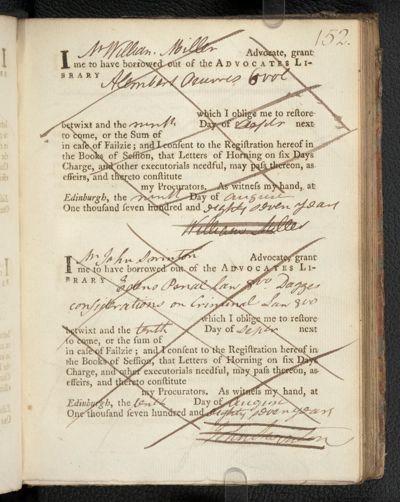 152.
I Mr William Miller Advocate, grant
me to have borrowed out of the ADVOCATES LI-
BRARY Alembert Oeuvres 6 vol
which I oblige me to restore
betwixt and the ninth Day of Septr next
to come, or the Sum of
in case of Failzie; and I consent to the Registration hereof in
the Books of Session, that Letters of Horning on six Days
Charge, and other executorials needful, may pass thereon, as
effeirs, and thereto constitute
my Procurators. As witness my hand, at
Edinburgh, the ninth Day of august
One thousand seven hundred and eighty seven years
William Miller
I Mr John Advocate, grant
me to have borrowed out of the ADVOCATES LI-
BRARY Penal Law 8vo Dagges
considerations on Criminal Law 8vo
which I oblige me to restore
betwixt and the tenth Day of Septr next
to come, or the sum of
in case of Failzie; and I consent to the Registration hereof in
the Books of Session, that Letters of Horning on six Days
Charge, and other executorials needful, may pass thereon, as
effeirs, and thereto constitute
my Procurators. As witness my hand, at
Edinburgh, the tenth Day of august
One thousand seven hundred and eighty seven years
John